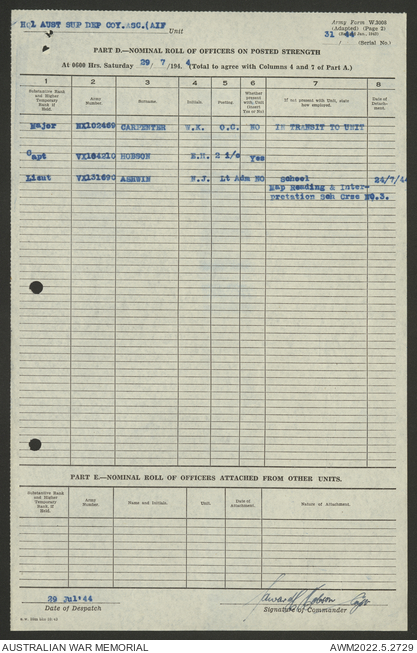 HQ1 AUST SUP DEP COY.ASC.(AIF
Unit
Army Form W.3008
(Adapted) (Page 2)
31 / 44 (Serial No.)
PART D.—NOMINAL ROLL OF OFFICERS ON POSTED STRENGTH
At 0600 Hrs. Saturday 29 / 7 /194 4 (Total to agree with Columns 4 and 7 of Part A.)
1 2 3 4 5 6 7 8
Substantive Rank and Higher Temporary Rank if Held. Army Number. Surname. Initials. Posting. Whether present with Unit (Insert Yes or No) If not present with Unit, state how employed. Date of Detachment.
Major NX102469 CARPENTER W.K. O.C. NO IN TRANSIT TO UNIT
Capt VX164210 HOBSON E.H. 2 i/c Yes
Lieut VX131690 N.J. Lt Adm NO School 24/7/44
Map Reading & Inter-
pretation Sch Crse NO.3.
PART E.—NOMINAL ROLL OF OFFICERS ATTACHED FROM OTHER UNITS.
Substantive Rank and Higher Temporary Rank if Held. Army Number. Name and Initials. Unit. Date of Attachment. Nature of Attachment.
29 Jul'44
Date of Despatch
Signature of Commander
AUSTRALIAN WAR MEMORIAL AWM2022.5.2729